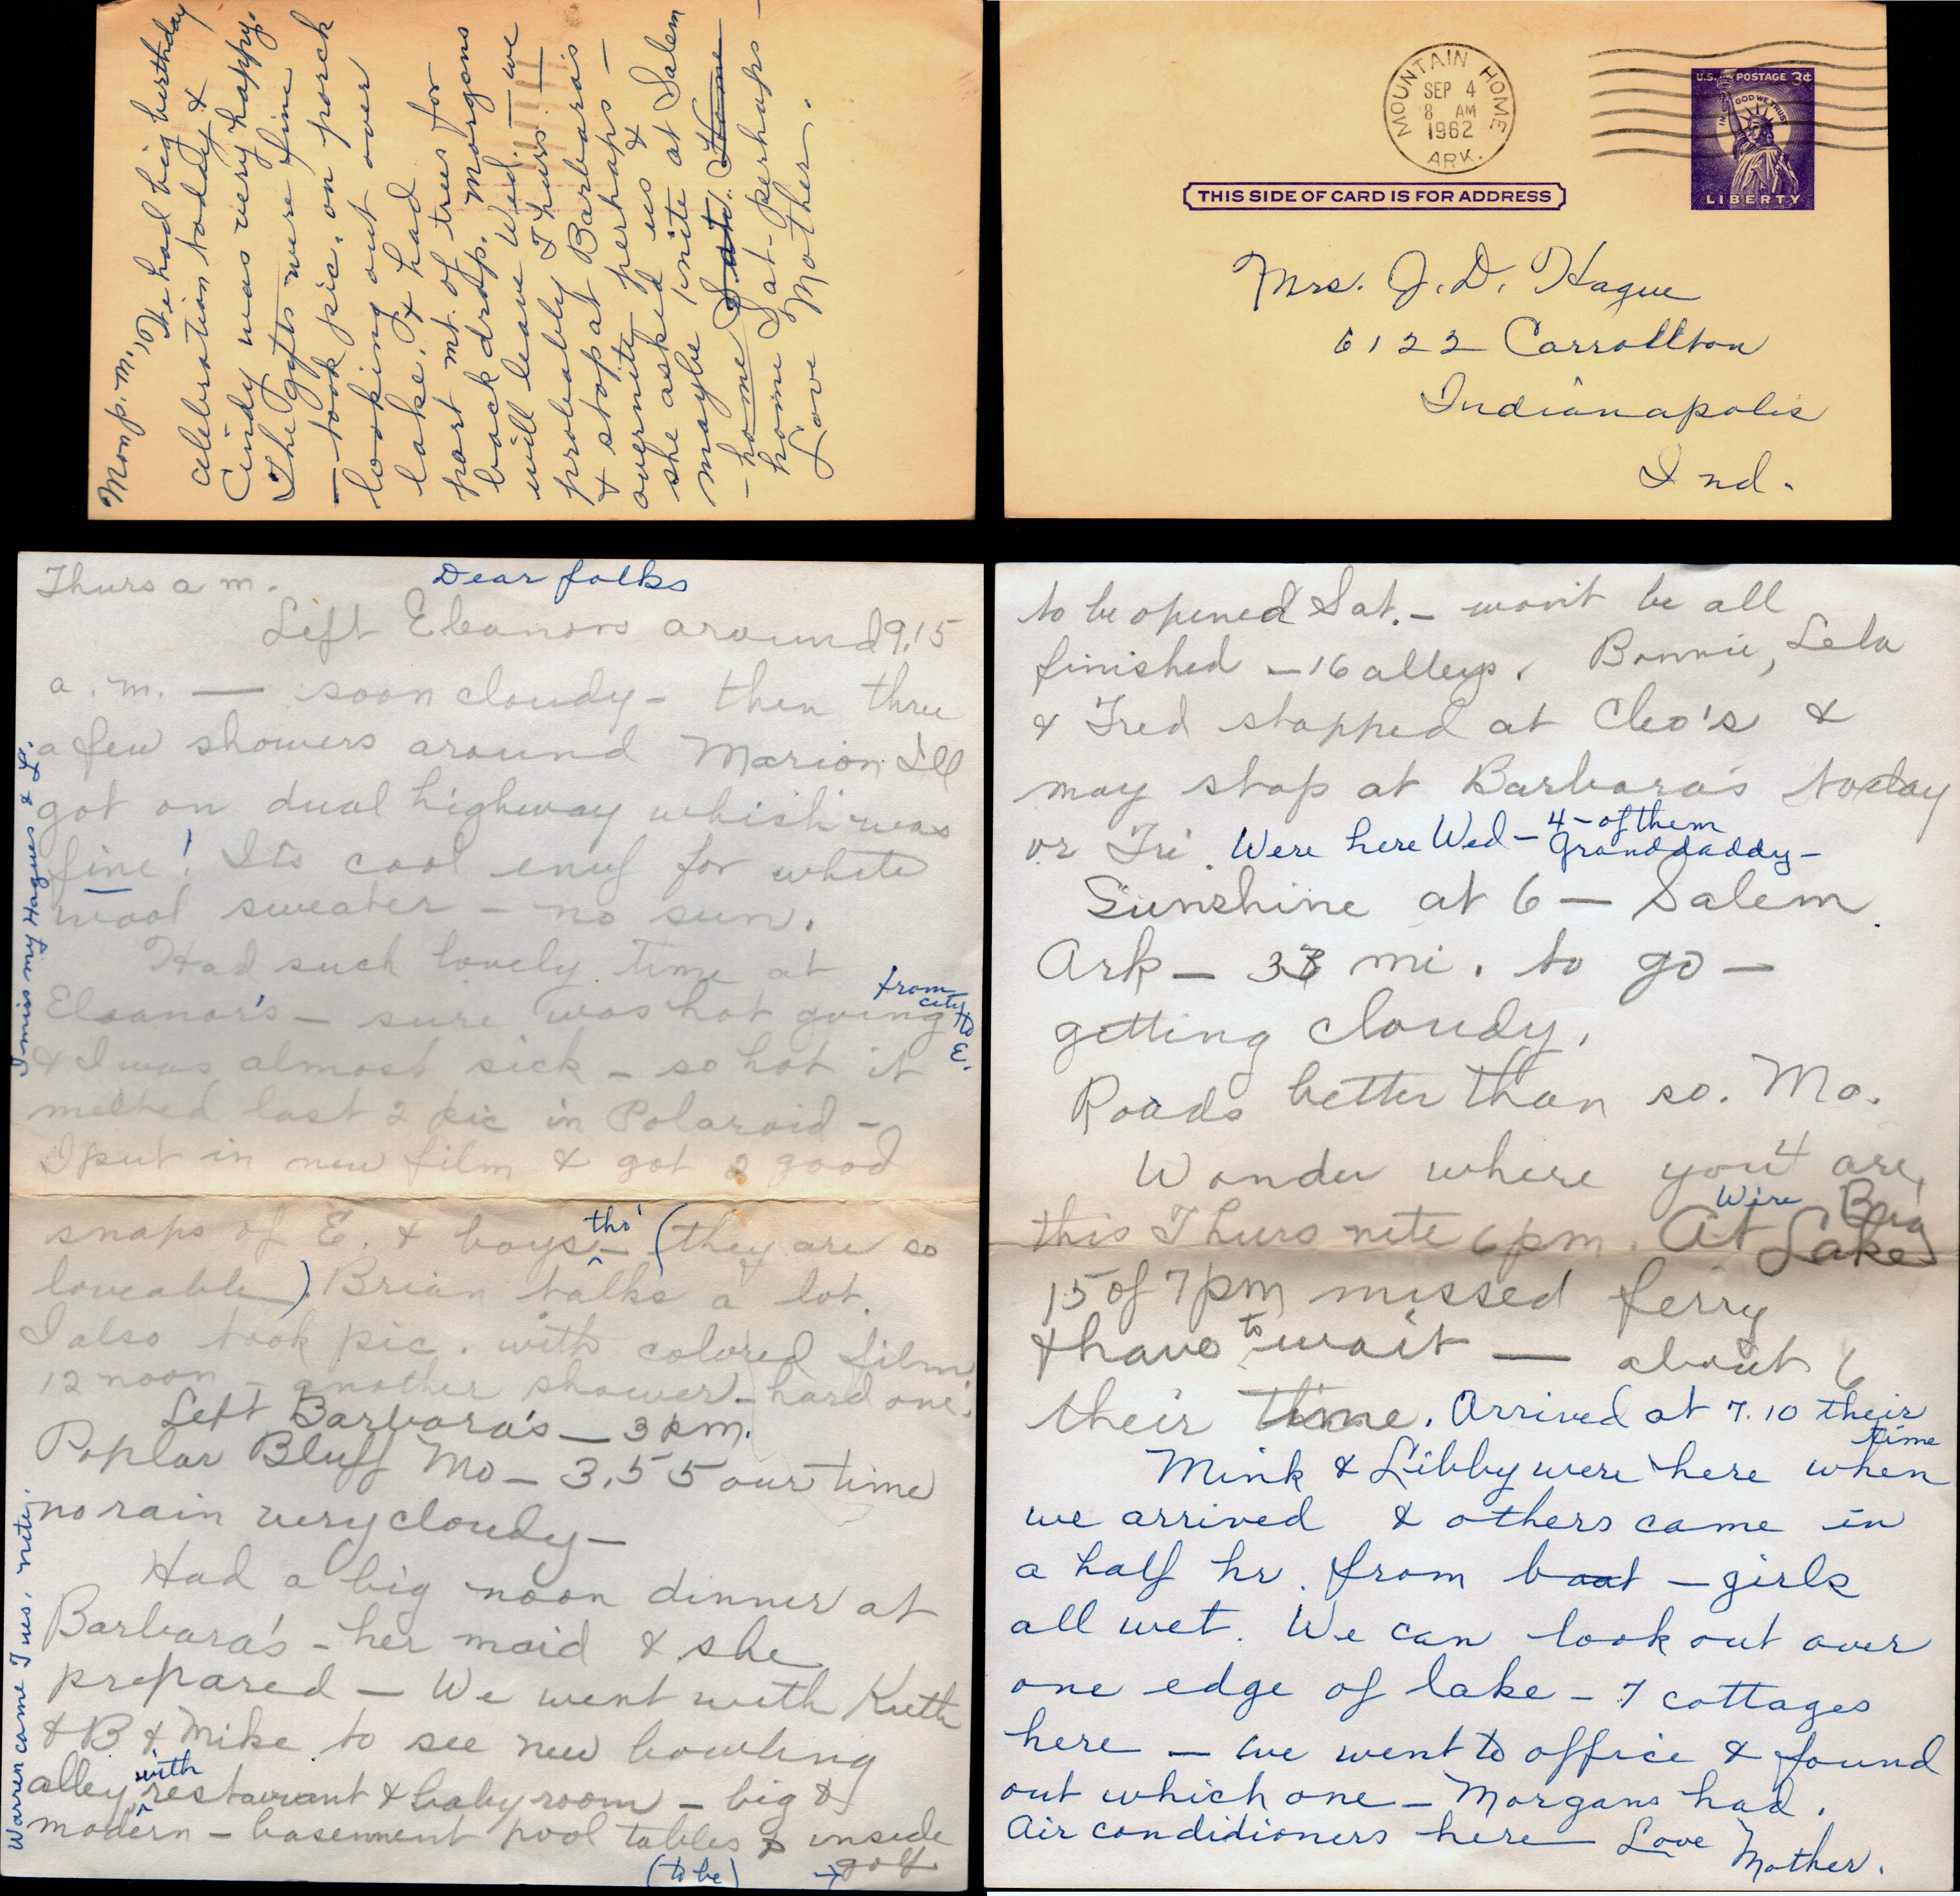 Mon p.m.,
We had big birthday
celebration today &
Cindy was very happy.
The gifts were fine
— took pic. on porch
looking out over
lake. It had
part mt. of trees for
back drop. Morgans
will leave Wed. — we
probably Thurs. —
& stop at Barbara's
overnite perhaps —
she asked us &
maybe 1 nite at Salem
— home Sat. Home
home Sat - perhaps —
Love Mother.
MOUNTAIN HOME
SEP 4
8 AM
1962
ARK.
U.S. POSTAGE 3¢
IN GOD WE TRUST
LIBERTY
THIS SIDE OF CARD IS FOR ADDRESS
Mrs. J. D. Hague
6122 Carrollton
Indianapolis
Ind.
Thurs a m.
Dear folks
Left Eleanors around 9.15
a.m. — soon cloudy - then thru
a few showers around Marion Ill
got on dual highway which was
fine! Its cool enuf for white
wool sweater - no sun.
Had such lovely time at
Eleanor's - sure was hot going from city to E.
& I was almost sick - so hot it
melted last 2 pic in Polaroid -
I put in new film & got 2 good
snaps of E. & boys - tho' (they are so
loveable). Brian talks a lot.
I also took pic. with colored film
12 noon - another shower - hard one.
Left Barbara's - 3 pm.
Poplar Bluff Mo - 3.55 our time
no rain very cloudy -
Had a big noon dinner at
Barbara's - her maid & she
prepared - We went with Kieth
& B & Mike to see new bowling
alley with restaurant & baby room - big &
modern - basenment pool tables & inside
(to be) → golf
I miss my Hagues & L.
Warren came Tues. nite.
to be opened Sat. - won't be all
finished - 16 alleys. Bonnie, Lela
& Fred stopped at Cleo's &
may stop at Barbara's today
or Fri. Were here Wed - 4 - of them
Granddaddy -
Sunshine at 6 - Salem
Ark - 33 mi. to go -
getting cloudy.
Roads better than so. Mo.
Wonder where you 4 are,
this Thurs nite 6 pm. At Lake
15 of 7 pm missed ferry
& have to wait — about 6
their time. Arrived at 7.10 their
time
Mink & Libby were here when
we arrived & others came in
a half hr. from boat - girls
all wet. We can look out over
one edge of lake - 7 cottages
here - we went to office & found
out which one - Morgans had.
Air condidioners here - Love
Mother.